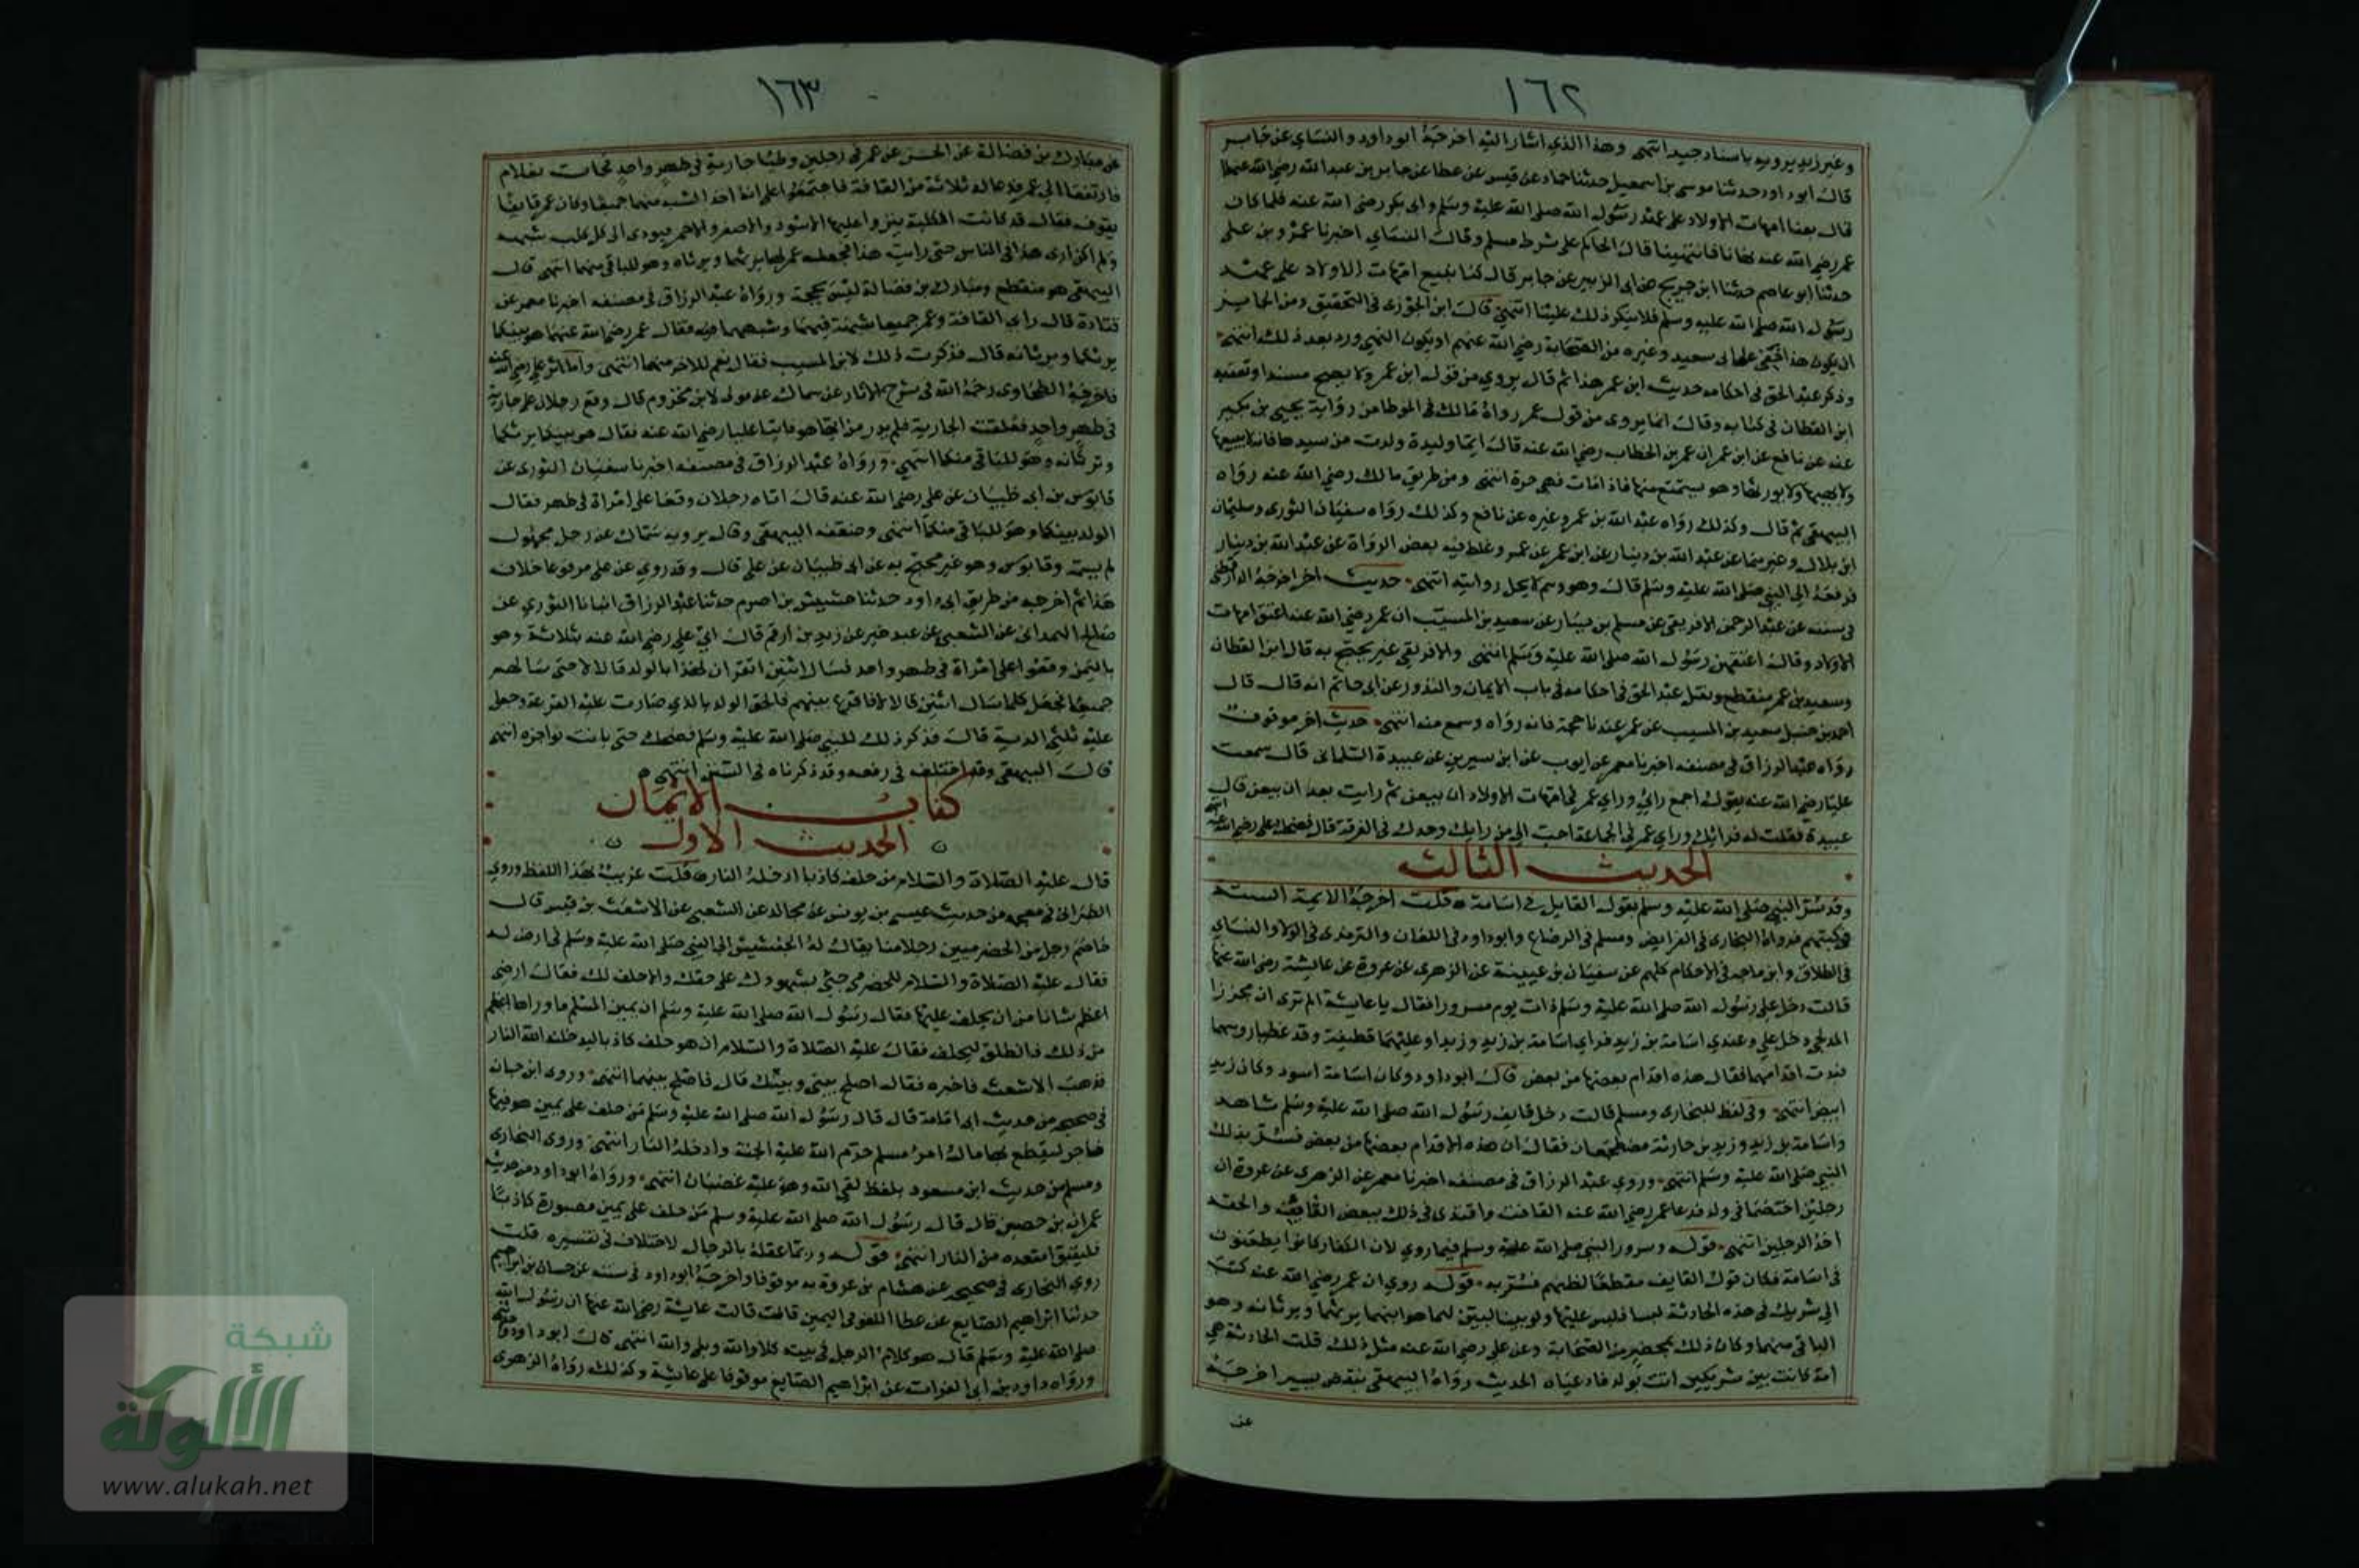 ١٦٢
وغير زيد يرويه باسناد جيد انتهى وهذا الذي اشار اليه اخرجه ابو داود والنساي عن جابر
قال ابو داود حدثنا موسى بن اسمعيل حدثنا حماد عن قيس عن عطا عن جابر بن عبد الله رضي الله عنهما
قال بعنا امهات الاولاد على عهد رسول الله صلى الله عليه وسلم وابي بكر رضي الله عنه فلما كان
عمر رضي الله عنه نهانا فانتهينا قال الحاكم على شرط مسلم وقال النساي اخبرنا عمرو بن علي
حدثنا ابو عاصم حدثنا ابن جريج عن ابي الزبير عن جابر قال كنا نبيع امهات الاولاد على عهد
رسول الله صلى الله عليه وسلم فلا ينكر ذلك علينا انتهى قال ابن الجوزي في التحقيق ومن الجايز
ان يكون هذا خفي على ابي سعيد وغيره من الصحابة رضي الله عنهم او يكون النهي ورد بعد ذلك انتهى
وذكر عبد الحق في احكامه حديث ابن عمر هذا ثم قال يروي من قول ابن عمر ولا يصح مسندا وتعقبه
ابن القطان في كتابه وقال انما يروى من قول عمر رواه مالك في الموطا من رواية يحيى بن بكير
عنه عن نافع عن ابن عمر ان عمر بن الخطاب رضي الله عنه قال ايما وليدة ولدت من سيدها فانه لا يبيعها
ولا يهبها ولا يورثها وهو يستمتع منها فاذا مات فهي حرة انتهى ومن طريق مالك رضي الله عنه رواه
البيهقي ثم قال وكذلك رواه عبد الله بن عمر وغيره عن نافع وكذلك رواه سفيان الثوري وسليمان
ابن بلال وغيرهما عن عبد الله بن دينار عن ابن عمر عن عمر وغلط فيه بعض الرواة عن عبد الله بن دينار
فرفعه الى النبي صلى الله عليه وسلم قال وهو وهم لا يحل روايته انتهى حديث اخر اخرجه الدارقطني
في سننه عن عبد الرحمن الافريقي عن مسلم بن يسار عن سعيد بن المسيب ان عمر رضي الله عنه اعتق امهات
الاولاد وقال اعتقهن رسول الله صلى الله عليه وسلم انتهى والافريقي غير محتج به قال ابن القطان
وسعيد بن عمر منقطع ونقل عبد الحق في احكامه في باب الايمان والنذور عن ابي حاتم انه قال قال
احمد بن حنبل سعيد بن المسيب عن عمر عندنا حجة فانه رواه وسمع منه انتهى حديث اخر موقوف
رواه عبد الرزاق في مصنفه اخبرنا معمر عن ايوب عن ابن سيرين عن عبيدة السلماني قال سمعت
عليا رضي الله عنه يقول اجمع رائي وراي عمر في امهات الاولاد ان لا يبعن ثم رايت بعد ان يبعن قال
عبيدة فقلت له فرايك وراي عمر في الجماعة احب الي من رايك وحدك في الفرقة قال فضحك علي رضي الله عنه انتهى
الحديث الثالث
وقد سر النبي صلى الله عليه وسلم بقول القايل في اسامة قلت اخرجه الايمة الستة
في كتبهم فرواه البخاري في الفرايض ومسلم في الرضاع وابو داود في اللعان والترمذي في الولا والنساي
في الطلاق وابن ماجه في الاحكام كلهم عن سفيان بن عيينة عن الزهري عن عروة عن عايشة رضي الله عنها
قالت دخل علي رسول الله صلى الله عليه وسلم ذات يوم مسرورا فقال يا عايشة الم تري ان مجززا
المدلجي دخل علي وعندي اسامة بن زيد فراى اسامة بن زيد وزيدا وعليهما قطيفة وقد غطيا روسهما
وبدت اقدامهما فقال هذه اقدام بعضها من بعض قال ابو داود وكان اسامة اسود وكان زيد
ابيض انتهى وفي لفظ للبخاري ومسلم قالت دخل قايف ورسول الله صلى الله عليه وسلم شاهد
واسامة بن زيد وزيد بن حارثة مضطجعان فقال ان هذه الاقدام بعضها من بعض فسر بذلك
النبي صلى الله عليه وسلم انتهى وروى عبد الرزاق في مصنفه اخبرنا معمر عن الزهري عن عروة ان
رجلين اختصما في ولد فدعا عمر رضي الله عنه القافة واقتدى في ذلك ببعض القافة والحقه
احد الرجلين انتهى قوله وسرور النبي صلى الله عليه وسلم فيما روي لان الكفار كانوا يطعنون
في اسامة فكان قول القايف مقطعا لطعنهم فسر به قوله روي ان عمر رضي الله عنه كتب
الى شريك في هذه الحادثة لبسا فلبس عليهما ولو بينا لبين لهما هو ابنهما يرثهما ويرثانه وهو
الباقي منهما وكان ذلك بمحضر من الصحابة وعن علي رضي الله عنه مثل ذلك قلت الحادثة هي
امة كانت بين شريكين اتت بولد فادعياه الحديث رواه البيهقي بنقص يسير اخرجه
عن
١٦٣
عن مبارك بن فضالة عن الحسن عن عمر في رجلين وطيا جارية في طهر واحد فجات بغلام
فارتفعا الى عمر فدعا له ثلاثة من القافة فاجتمعوا على انه اخذ الشبه منهما جميعا وكان عمر قايفا
يقوف فقال قد كانت الكلبة ينزو عليها الاسود والاصفر والاحمر فيودي الى كل كلب شبهه
ولم اكن ارى هذا في الناس حتى رايت هذا فجعله عمر لهما يرثهما ويرثاه وهو للباقي منهما انتهى قال
البيهقي هو منقطع ومبارك بن فضالة ليس بحجة ورواه عبد الرزاق في مصنفه اخبرنا معمر عن
قتادة قال راي القافة وعمر جميعا شبهه فيهما وشبههما فيه فقال عمر رضي الله عنهما هو بينكما
يرثكما وترثانه قال فذكرت ذلك لابن المسيب فقال نعم للاخر منهما انتهى واما اثر علي رضي الله عنه
فاخرجه الطحاوي رحمه الله في شرح الاثار عن سماك عن مولى لابن مخزوم قال وقع رجلان على جارية
في طهر واحد فعلقت الجارية فلم يدر من ايهما هو فاتيا عليا رضي الله عنه فقال هو بينكما يرثكما
وترثانه وهو للباقي منكما انتهى ورواه عبد الرزاق في مصنفه اخبرنا سفيان الثوري عن
قابوس بن ابي ظبيان عن علي رضي الله عنه قال اتاه رجلان وقعا على امراة في طهر فقال
الولد بينكما وهو للباقي منكما انتهى وضعفه البيهقي وقال يرويه سماك عن رجل مجهول
لم يسمه وقابوس وهو غير محتج به عن ابي ظبيان عن علي قال وقد روي عن علي مرفوعا خلاف
هذا ثم اخرجه من طريق ابي داود حدثنا خشيش بن اصرم حدثنا عبد الرزاق انبانا الثوري عن
صالح الهمداني عن الشعبي عن عبد خير عن زيد بن ارقم قال اتي علي رضي الله عنه بثلاثة وهو
باليمن وقعوا على امراة في طهر واحد فسال اثنين اتقران لهذا بالولد قالا لا حتى سالهم
جميعا فجعل كلما سال اثنين قالا لا فاقرع بينهم فالحق الولد بالذي صارت عليه القرعة وجعل
عليه ثلثي الدية قال فذكر ذلك للنبي صلى الله عليه وسلم فضحك حتى بانت نواجذه انتهى
قال البيهقي وقد اختلف في رفعه وقد ذكرناه في السنن انتهى
كتاب الايمان
الحديث الاول
قال عليه الصلاة والسلام من حلف كاذبا ادخله النار قلت غريب بهذا اللفظ وروى
الطبراني في معجمه من حديث عيسى بن يونس عن مجالد عن الشعبي عن الاشعث بن قيس قال
خاصم رجل من الحضرميين رجلا منا يقال له الجفشيش الى النبي صلى الله عليه وسلم في ارض له
فقال عليه الصلاة والسلام للحضرمي جئ بشهودك على حقك والا حلف لك فقال ارضي
اعظم شانا من ان يحلف عليها فقال رسول الله صلى الله عليه وسلم ان يمين المسلم ما وراها اعظم
من ذلك فانطلق ليحلف فقال عليه الصلاة والسلام ان هو حلف كاذبا ليدخلنه الله النار
فذهب الاشعث فاخبره فقال اصلح بيني وبينك قال فاصلح بينهما انتهى وروى ابن حبان
في صحيحه من حديث ابي امامة قال قال رسول الله صلى الله عليه وسلم من حلف على يمين هو فيها
فاجر ليقطع بها مال امرء مسلم حرم الله عليه الجنة وادخله النار انتهى وروى البخاري
ومسلم من حديث ابن مسعود بلفظ لقي الله وهو عليه غضبان انتهى ورواه ابو داود من حديث
عمران بن حصين قال قال رسول الله صلى الله عليه وسلم من حلف على يمين مصبورة كاذبا
فليتبوا مقعده من النار انتهى قوله وربما عقله بالرجال لاختلاف في تفسيره قلت
روى البخاري في صحيحه عن هشام بن عروة به موقوفا واخرجه ابو داود في سننه عن حسان بن ابراهيم
حدثنا ابراهيم الصايغ عن عطا اللغو في اليمين قالت قالت عايشة رضي الله عنها ان رسول الله
صلى الله عليه وسلم قال هو كلام الرجل في بيته كلا والله وبلى والله انتهى قال ابو داود
ورواه داود بن ابي الفرات عن ابراهيم الصايغ موقوفا على عايشة وكذلك رواه الزهري
شبكة
الألوكة
www.alukah.net